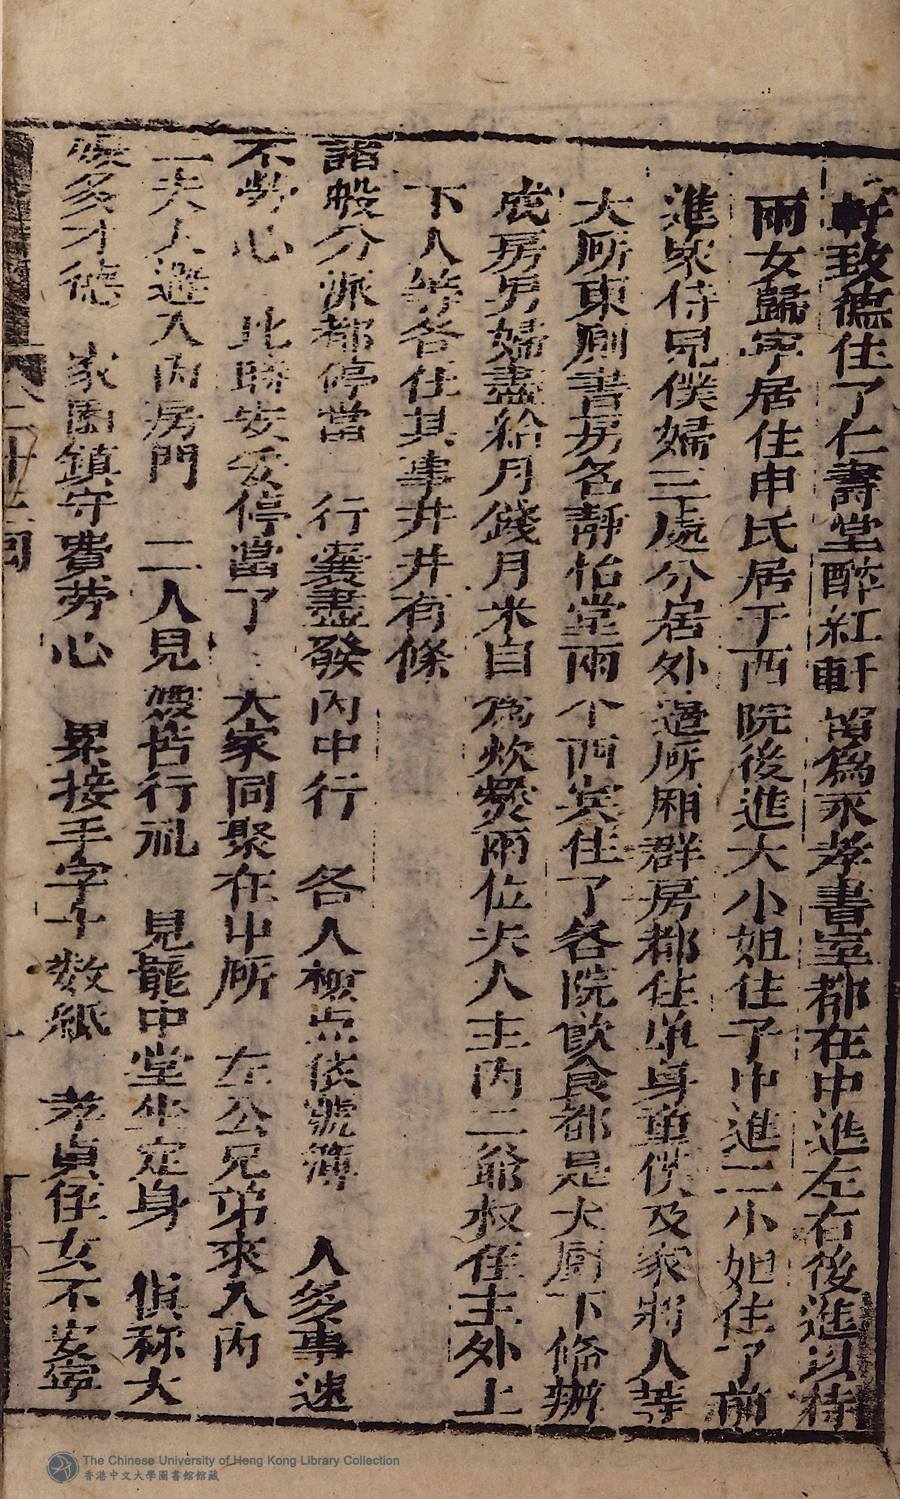 軒致德住了仁壽堂醉紅軒留為永孝書室都在中進左右後進以待
兩女歸寧居住申氏居于西院後進大小姐住了中進二小姐住了前
進眾侍兒僕婦三處分居外邊所廂群房都住单身童僕及家將人等
大所東廁書房名靜怡堂兩个西宾住了各院飲食都是大廚下俻辦
成房男婦盡給月錢月米自為炊爨兩位夫人主内二爺叔侄主外上
下人等各任其事井井有條
諸般分派都停當 行囊盡發内中行 各人檢点依號簿 人多事速
不勞心 此時安妥停當了 大家同聚在中所 左公兄弟來入内
二夫人進入内房門 二人見嫂皆行礼 見罷中堂坐定身 偵称大
嫂多才德 家園鎮守費劳心 累接手字十数紙 孝貞侄女不安寧
二十三囘
The Chinese University of Hong Kong Library Collection
香港中文大學圖書館館藏